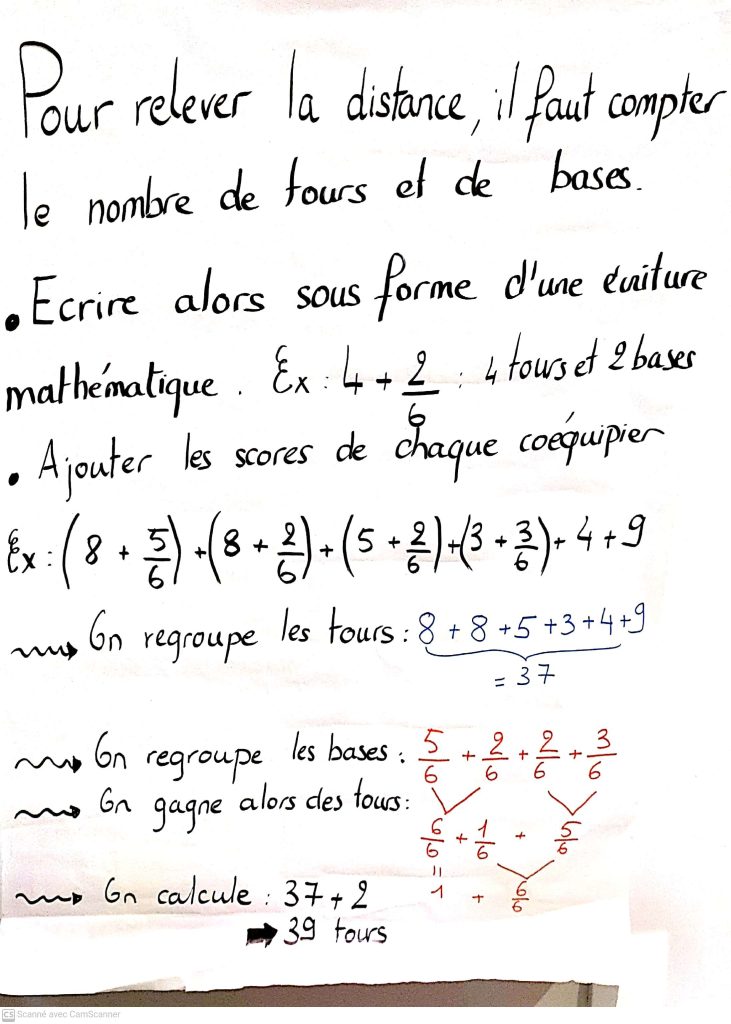 Pour relever la distance, il faut compter
le nombre de tours et de bases.
• Ecrire alors sous forme d'une écriture
mathématique. Ex : 4 + 2/6 : 4 tours et 2 bases
• Ajouter les scores de chaque coéquipier
Ex : (8 + 5/6) + (8 + 2/6) + (5 + 2/6) + (3 + 3/6) + 4 + 9
⇝ On regroupe les tours : 8 + 8 + 5 + 3 + 4 + 9
= 37
⇝ On regroupe les bases : 5/6 + 2/6 + 2/6 + 3/6
⇝ On gagne alors des tours :
6/6 + 1/6 + 5/6
⇝ On calcule : 37 + 2
= 1 + 6/6
➡ 39 tours
CS Scanné avec CamScanner